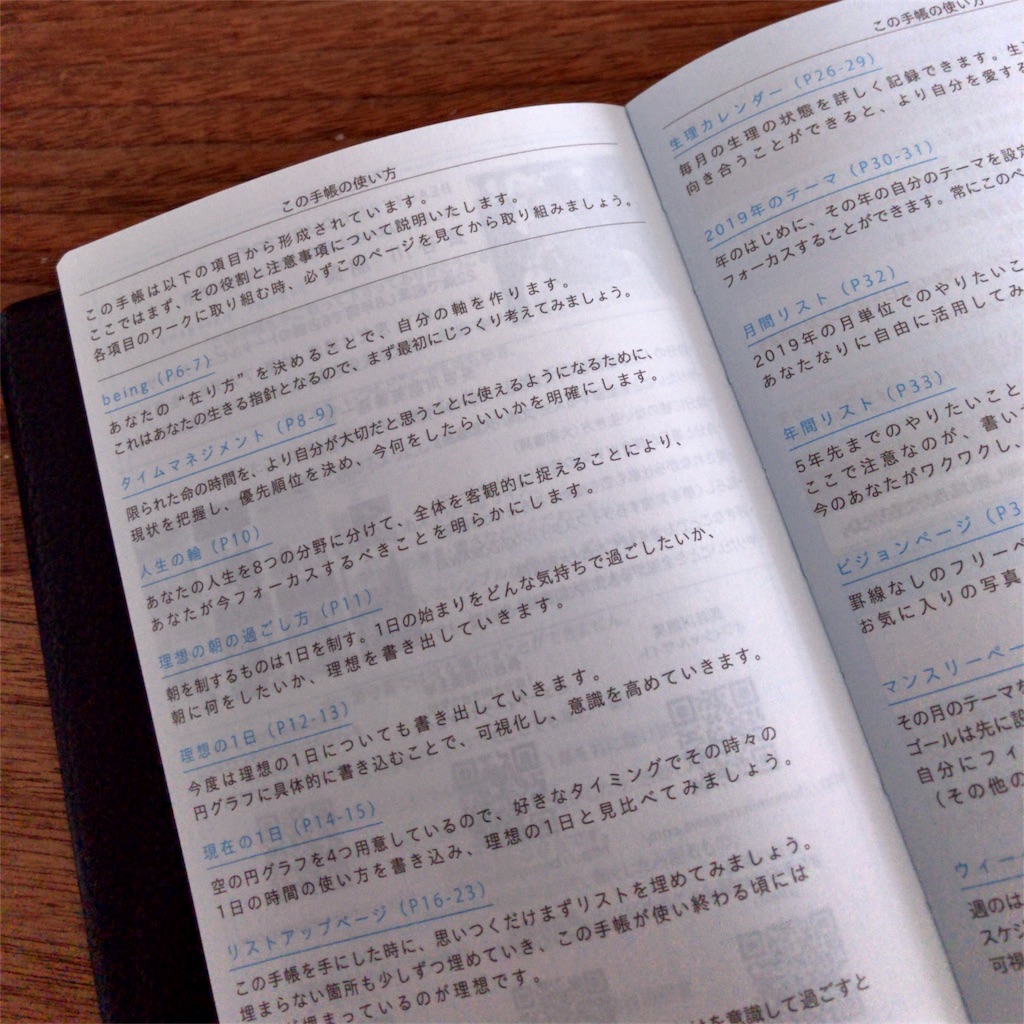 この手帳の使い方
この手帳は以下の項目から形成されています。
ここではまず、その役割と注意事項について説明いたします。
各項目のワークに取り組む時、必ずこのページを見てから取り組みましょう。
being（P6-7）
あなたの“在り方”を決めることで、自分の軸を作ります。
これはあなたの生きる指針となるので、まず最初にじっくり考えてみましょう。
タイムマネジメント（P8-9）
限られた命の時間を、より自分が大切だと思うことに使えるようになるために、
現状を把握し、優先順位を決め、今何をしたらいいかを明確にします。
人生の輪（P10）
あなたの人生を8つの分野に分けて、全体を客観的に捉えることにより、
あなたが今フォーカスするべきことを明らかにします。
理想の朝の過ごし方（P11）
朝を制するものは1日を制す。1日の始まりをどんな気持ちで過ごしたいか、
朝に何をしたいか、理想を書き出していきます。
理想の1日（P12-13）
今度は理想の1日についても書き出していきます。
円グラフに具体的に書き込むことで、可視化し、意識を高めていきます。
現在の1日（P14-15）
空の円グラフを4つ用意しているので、好きなタイミングでその時々の
1日の時間の使い方を書き込み、理想の1日と見比べてみましょう。
リストアップページ（P16-23）
この手帳を手にした時に、思いつくだけまずリストを埋めてみましょう。
埋まらない箇所も少しずつ埋めていき、この手帳が使い終わる頃には
埋まっているのが理想です。
を意識して過ごすと
この手帳の使い方
生理カレンダー（P26-29）
毎月の生理の状態を詳しく記録できます。生
向き合うことができると、より自分を愛する
2019年のテーマ（P30-31）
年のはじめに、その年の自分のテーマを設定
フォーカスすることができます。常にこのペ
月間リスト（P32）
2019年の月単位でのやりたいこ
あなたなりに自由に活用してみ
年間リスト（P33）
5年先までのやりたいこと
ここで注意なのが、書い
今のあなたがワクワクし、
ビジョンページ（P3
罫線なしのフリーペ
お気に入りの写真
マンスリーペー
その月のテーマを
ゴールは先に設
自分にフィ
（その他の
ウィー
週のは
スケジ
可視